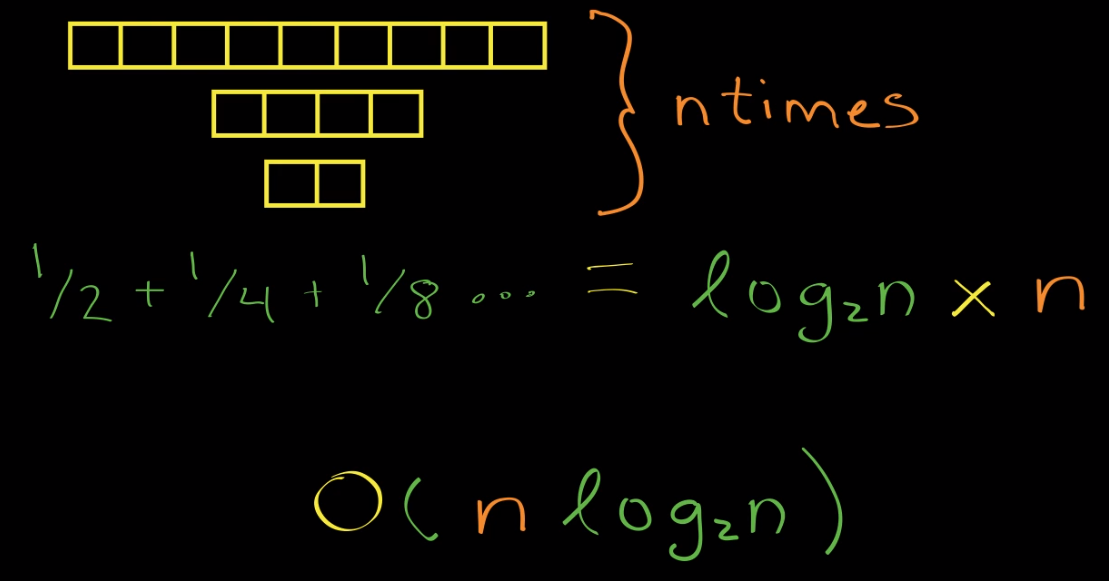 n times
1/2 + 1/4 + 1/8 ... = log₂n × n
O(n log₂n)